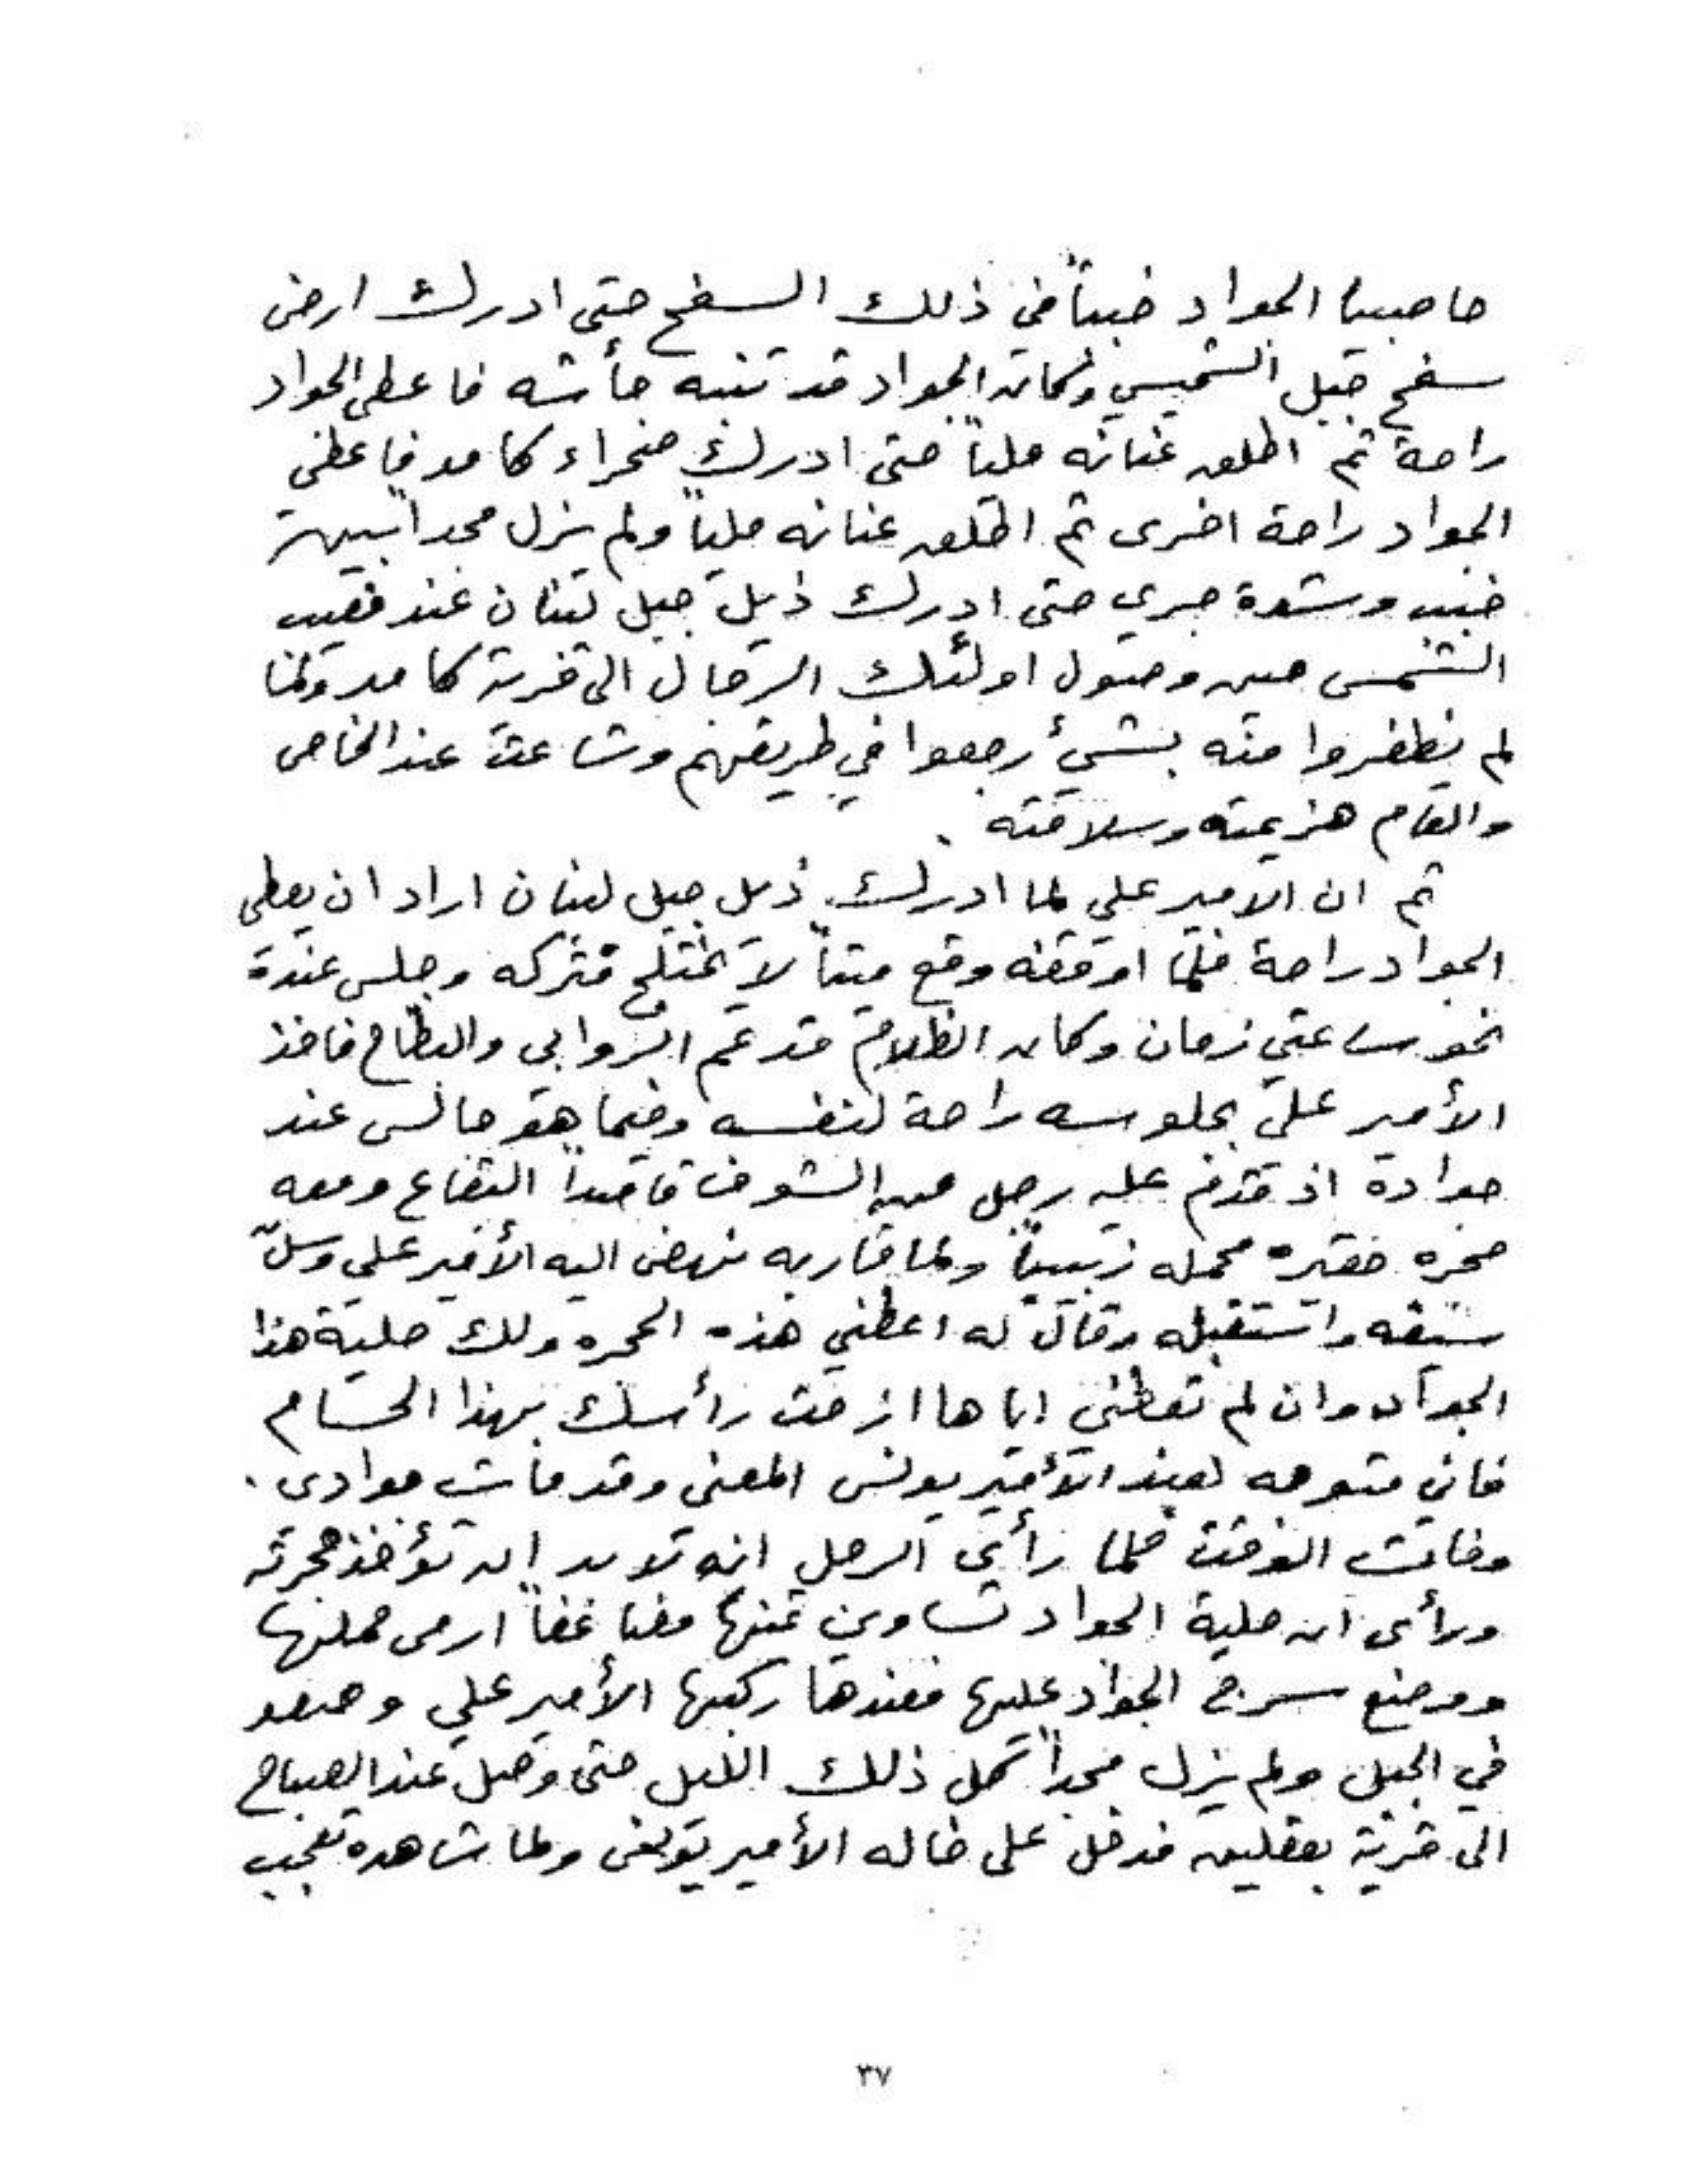 الجواد خبباً في ذلك السفح حتى ادرك ارض
سفح جبل الشميسي وكان الجواد قد تنبه جأشه فاعطى الجواد
راحة ثم اطلق عنانه ملياً حتى ادرك صحراء كامد فاعطى
الجواد راحة اخرى ثم اطلق عنانه ملياً ولم يزل مجداً بين
خبب وشدة جري حتى ادرك ذيل جبل لبنان عند مغيب
الشمس حين وصول اولئك الرجال الى قرية كامد ولما
لم يظفروا منه بشيئ رجعوا في طريقهم وشاعت عند الخاص
والعام هزيمته وسلامته .
ثم ان الامير علي لما ادرك ذيل جبل لبنان اراد ان يعطي
الجواد راحة فلما اوقفه وقع ميتاً لا يختلج فتركه وجلس عنده
نحو ساعتي زمان وكان الظلام قد عم الروابي والبطاح فاخذ
الأمير علي بجلوسه راحة لنفسه وفيما هو جالس عند
جواده اذ قدم عليه رجل من الشوف قاصداً البقاع ومعه
حجره محمله زبيباً ولما قاربه نهض اليه الأمير علي وسلّ
سيفه واستقبله وقال له اعطني هذه الحجره ولك حلية هذا
الجواد وان لم تعطني اياها ازمت رأسك بهذا الحسام
فاني متوجه لعند الأمير يونس المعني وقد مات جوادي .
وفات الوقت فلما رأى الرجل انه لا بد ان تؤخذ حجرته
ورأى ان حلية الجواد تساوي ثمنها مضاعفاً ارمى حملها
ووضع سرج الجواد عليها فعندها ركبها الأمير علي وصعد
في الجبل ولم يزل مجداً كل ذلك الليل حتى وصل عند الصباح
الى قرية بعقلين فدخل على خاله الأمير يونس ولما شاهده تعجب
٣٧